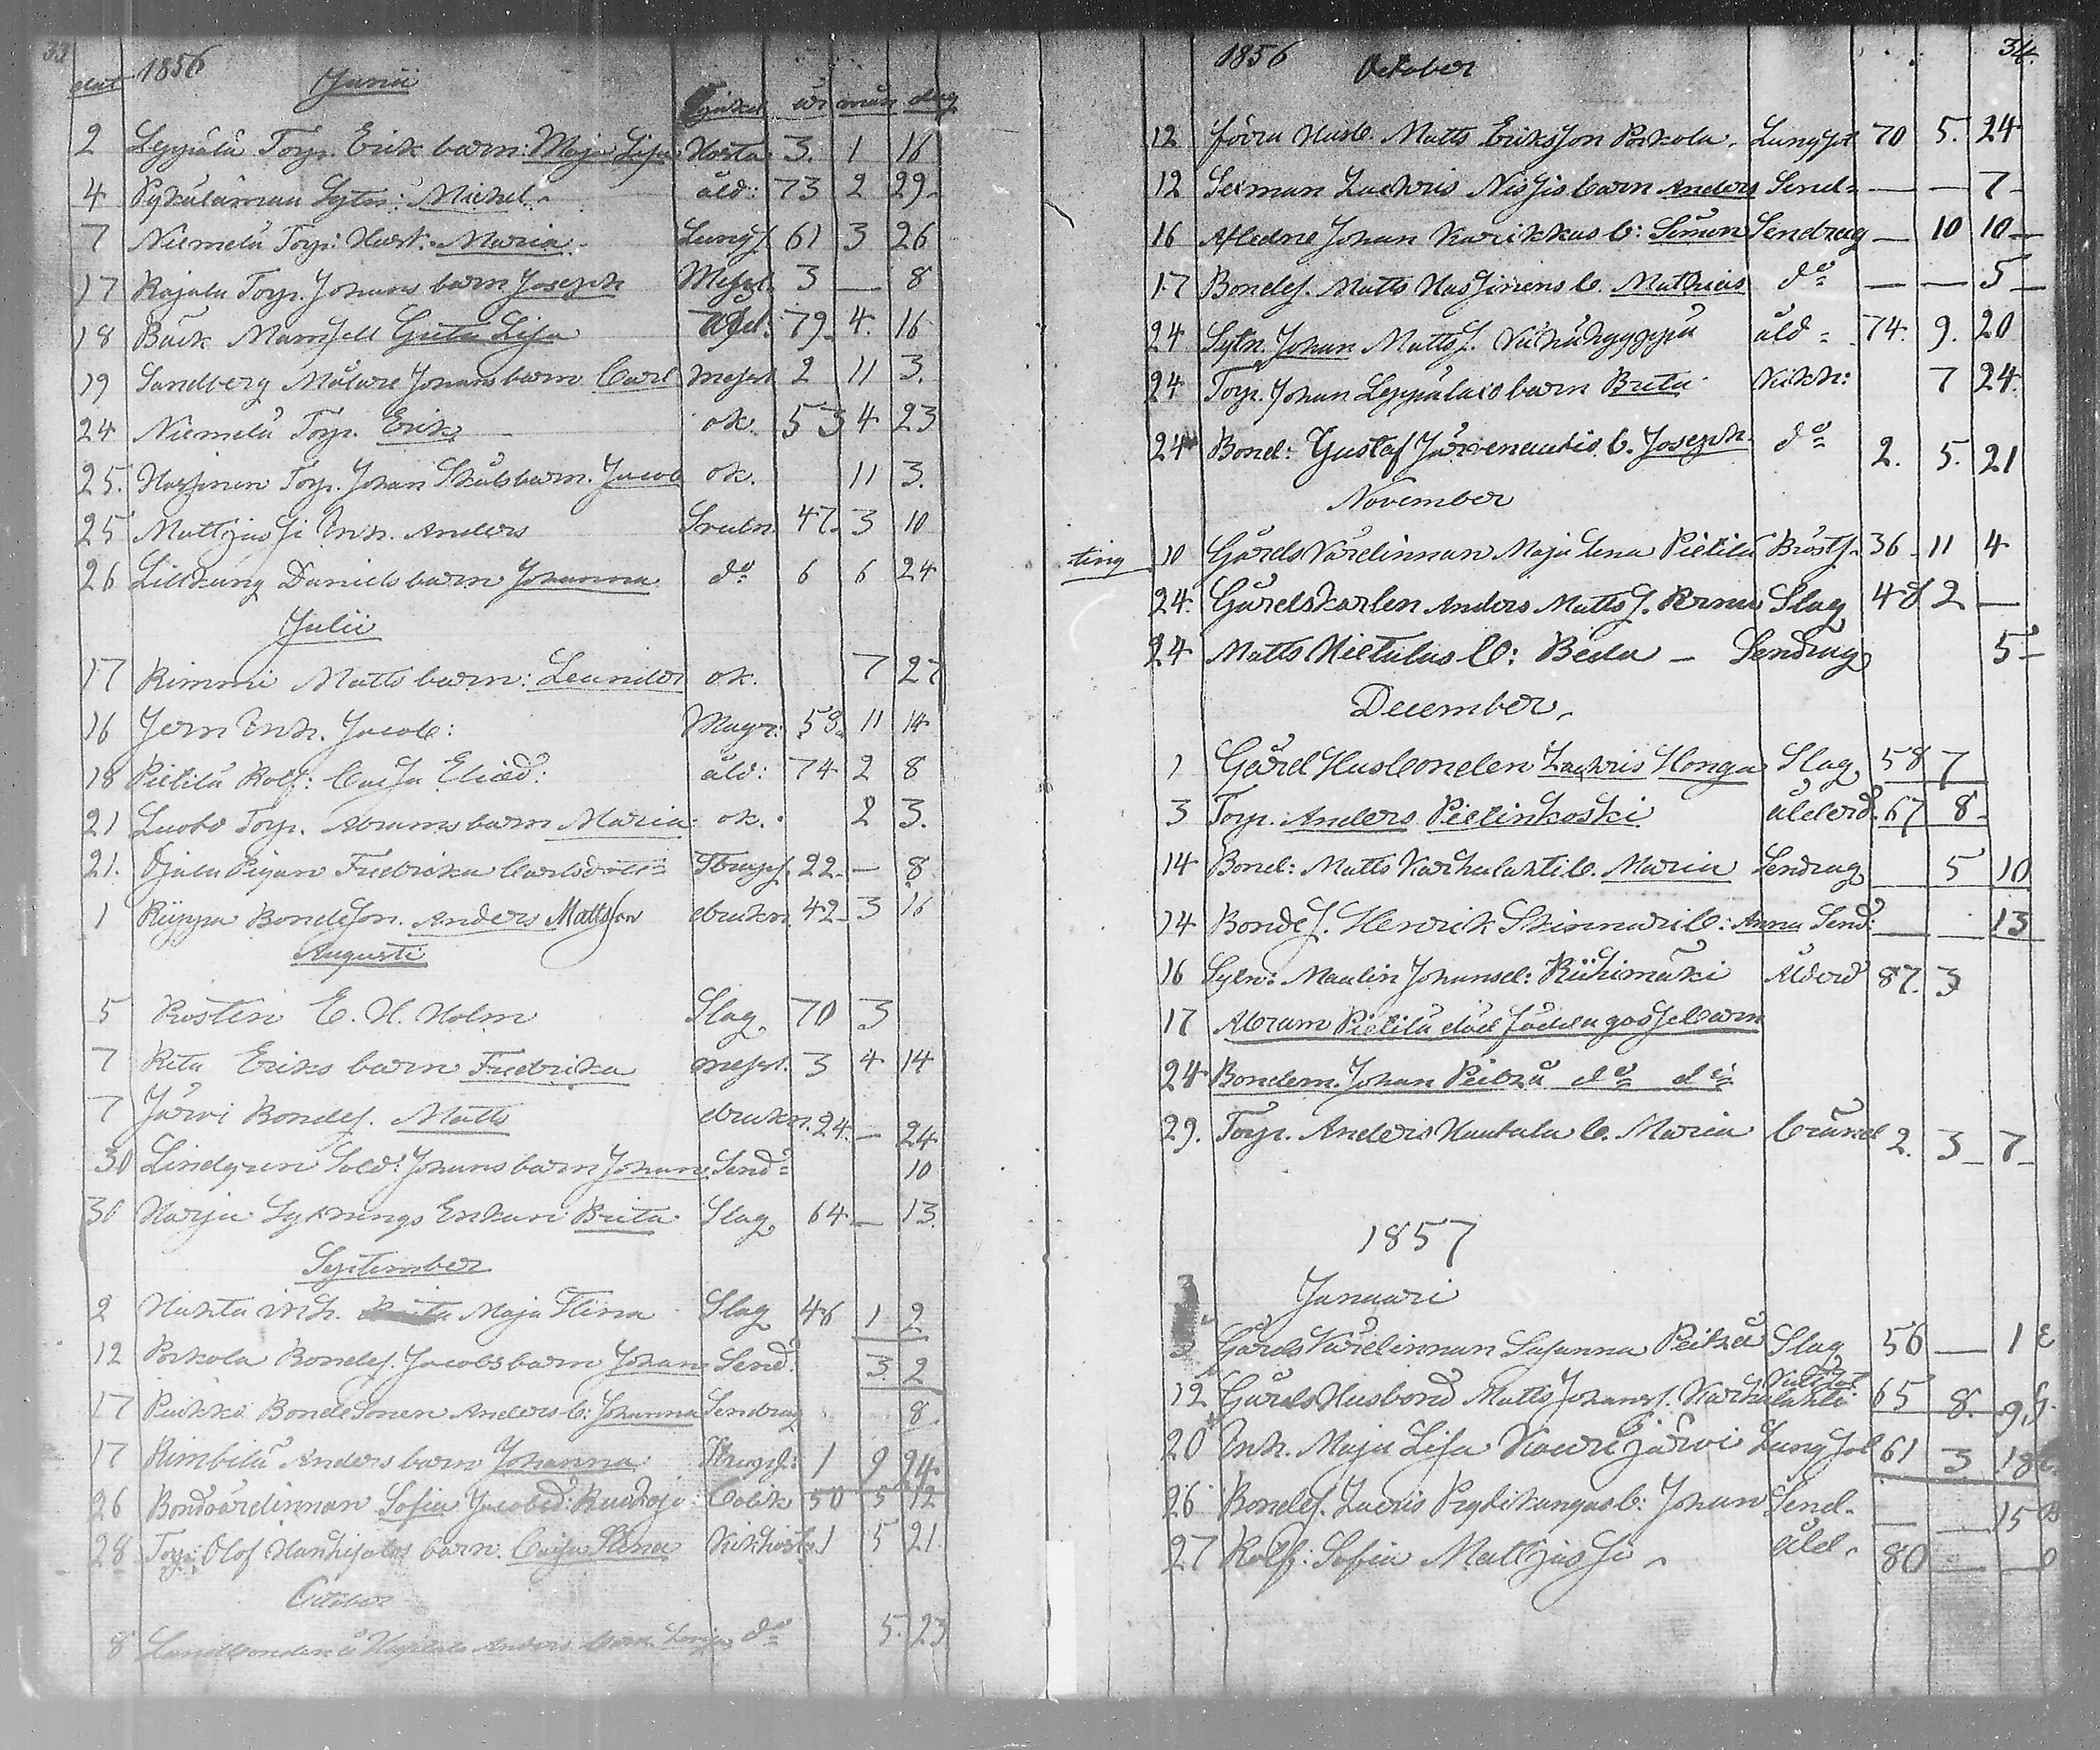 33
dat 1856 Junii Sjukd. år mån dag
2 Leppälä Torp. Erik barn: Maja Lisa Hosta 3. 1 16
4 Pykälämäu Sytn: Michel åld: 73 2 29
7 Niemelä Torp: Hust. Maria Lungs. 61 3 26
17 Rajala Torp. Johans barn Joseph Messl. 3 — 8
18 Bäck Mamsell Greta Lisa 79. 4. 16
19 Sandberg Målare Johans barn Carl messl 2 11 3.
24 Niemelä Torp. Erik ok. 53 4 23
25. Hassinen Torp. Johan barn. Jacob ok. 11 3.
25 Mattjussi Inh. Anders 47. 3 10
26 Lillkung Daniels barn Johanna do 6 6 24
Julii
17 Rimmi Matts barn: Leander ok. 7 27
16 Jern Enk. Jacob: Magr: 58. 11 14
18 Pietilä Rolf: Caisa Elisd: åld: 74 2 8
21 Luoto Torp. Abrams barn Maria ok. 2 3.
21. Ojala Pigan Fredrika Carlsdotter 22. — 8
1 Rüppa Bondeson. Anders Mattsson drukn. 42. 3 16
Augusti
5 Prosten E. H. Holm Slag 70 3
7 Rita Eriks barn Fredrika messl. 3 4 14
7 Järvi Bondes. Matts drukn. 24. — 24
30 Lindgren Sold: Johans barn Johan Send: 10
30 Harju Sytnings Enkan Brita Slag 64 — 13.
September
2 Hahta inh. Maja Stina Slag 46 1 2
12 Porkola Bondes. Jacobs barn Johan Send. 3 2
17 Puikko Bonde Sonen Anders b: Johanna Sendrag 8
17 Rimbilä Anders barn Johanna Strups: 1 9 24.
26 Bondvärdinnan Sofia Jacobsd: Colik 50 5 12
28 Torp: Olof barn. Caisa Stina Kikhost. 1 5 21.
October
8 Landbonden å Anders barn do 5. 23
1856 October 34.
12 förra Husb. Matts Eriksson Porkola. Lungsot 70 5. 24
12 Sexman Zachris barn Anders Send. — — 7
16 Afledne Johan Karikkas b: Simon Sendrag — 10 10
17 Bondes. Matts Hassinens b. Mathias do — — 5
24 Sytn. Johan Mattss. åld 74. 9. 20
24 Torp. Johan Leppälais barn Brita Kikh: 7 24.
24 Bond: Gustaf Järvenauties b. Joseph do 2. 5. 21
November
ting 10 Gårds Värdinnan Maja Lena Pietilä Brösts. 36 11 4
24. Gårdskarlen Anders Matts J. Slag 48 2 —
24 Matts Hietalas b: Beda — Sendrag 5
December
1 Gård Husbonden Zachris Honga Slag 58 7
3 Torp. Anders Pietinkoski ålderd. 67 8
14 Bond: Matts Karhulahti b. Maria Sendrag 5 10
14 Bondes. Henrik Skinnari b: Anna Send: — — 13
16 Sytn: Maulin Johansd: Riihimäki Ålderd 87. 3
17 Abram Pietilä död födda gossebarn
24 Bondem. Johan Peitzä do do
29. Torp. Anders Hautala b. Maria bränd 2. 3 7
1857
Januari
3 Gårds Värdinnan Susanna Peitza Slag 56 — 1
12 Gårds Husbond Matts Johanss. Karhulahti 65 8. 9
20 Inh. Maja Lisa Kaurijärvi Lungsot 61 3 18
26 Bondes. Zacris b: Johan Send. — — 15
27 Rolf: Sofia Mattjussi åld. 80 —